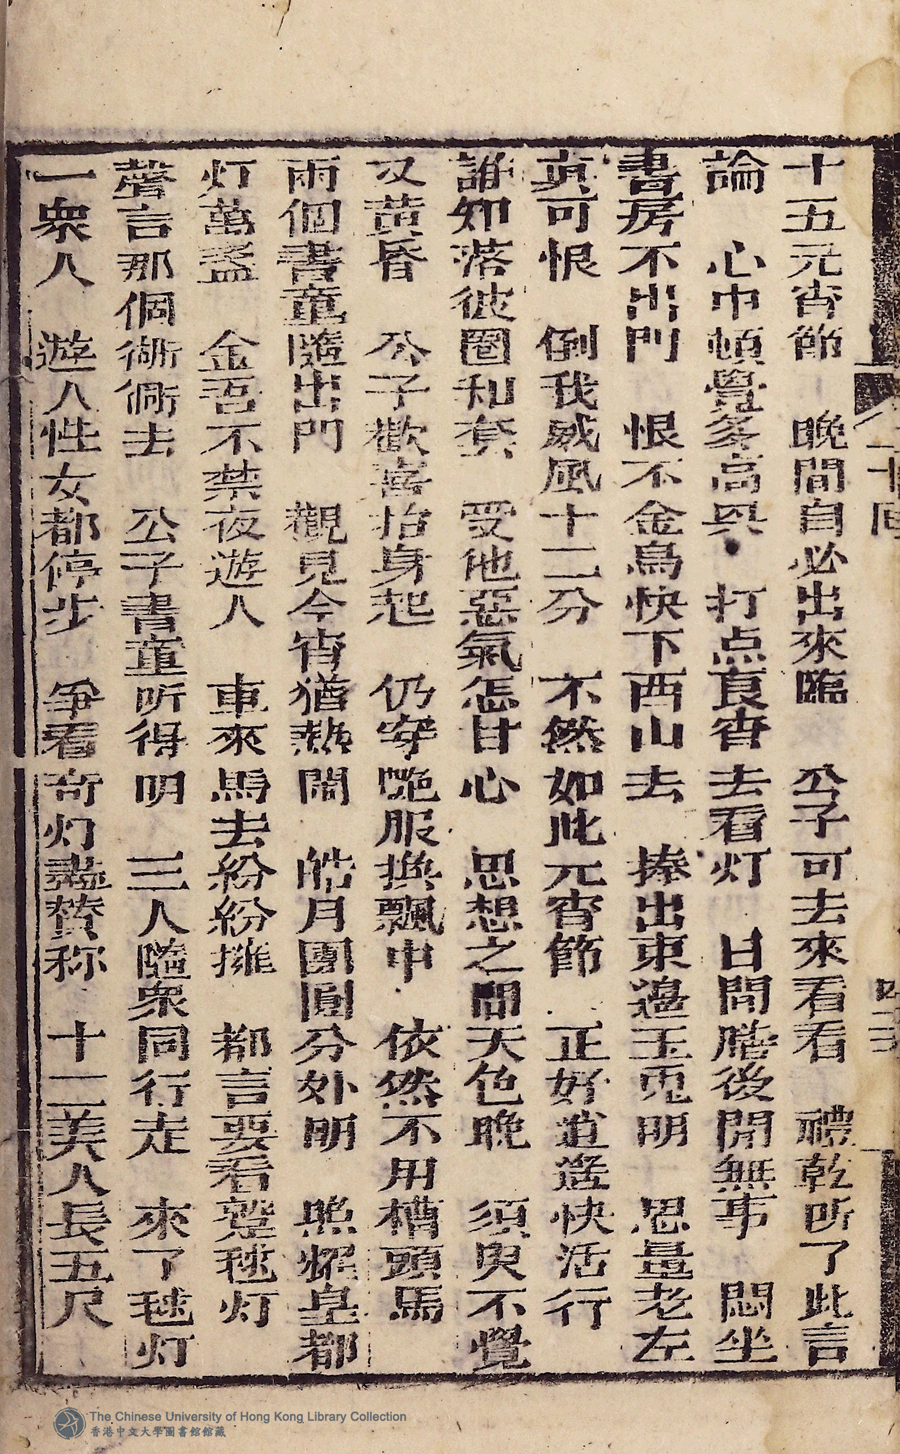 十五元宵節　晚間自必出來臨　公子可去來看看　禮乾听了此言
論　心中頓覺多高兴　打点良宵去看灯　日間膳後閒無事　悶坐
書房不出門　恨不金烏快下西山去　捧出東邉玉兎明　思量老左
真可恨　倒我威風十二分　不然如此元宵節　正好逍遥快活行
誰知落彼圈和套　受他惡氣怎甘心　思想之間天色晚　須臾不覺
又黄昏　公子歡喜抬身起　仍穿艷服換飄巾　依然不用槽頭馬
兩個書童隨出門　觀見今宵猶熱鬧　皓月團圓分外明　照耀皇都
灯萬盞　金吾不禁夜遊人　車來馬去紛紛擁　都言要看鰲毬灯
聲言那個衚衕去　公子書童听得明　三人隨衆同行走　來了毬灯
一衆人　遊人性女都停步　爭看奇灯盡賛称　十二美人長五尺
二十回
The Chinese University of Hong Kong Library Collection
香港中文大學圖書館館藏